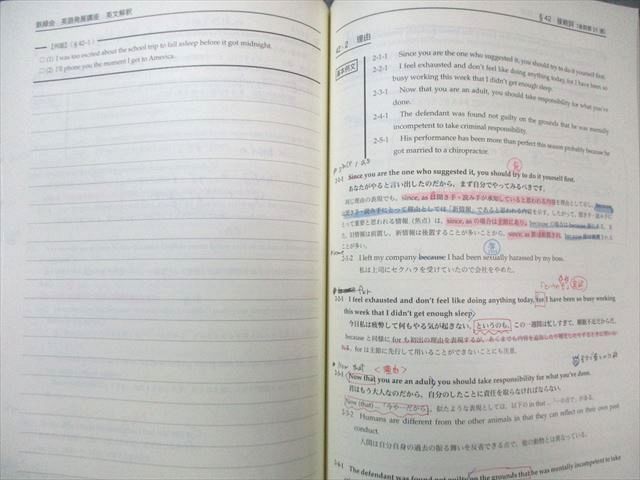 鉄緑会 英語発展講座 英文解釈
【例題】(§42-1)
□ (1) I was too excited about the school trip to fall asleep before it got midnight.
□ (2) I'll phone you the moment I get to America.
§42 接続詞
42-2 理由
基本例文
2-1-1 Since you are the one who suggested it, you should try to do it yourself first.
2-2-1 I feel exhausted and don't feel like doing anything today, for I have been so
busy working this week that I didn't get enough sleep.
2-3-1 Now that you are an adult, you should take responsibility for what you've
done.
2-4-1 The defendant was found not guilty on the grounds that he was mentally
incompetent to take criminal responsibility.
2-5-1 His performance has been more than perfect this season probably because he
got married to a chiropractor.
2-1-1 Since you are the one who suggested it, you should try to do it yourself first.
あなたがやると言い出したのだから、まず自分でやってみるべきです。
同じ理由の表現でも、since, as は聞き手・読み手が承知していると思われる内容を理由として示し、because
は聞き手・読み手にとって理由としては「新情報」であると思われる内容を示す。したがって、聞き手・読み手に
とって重要と思われる情報(焦点)は、since, as の場合は主節にあり、because の場合は because 節にある。ま
た、旧情報は前置し、新情報は後置することが多いことから、since, as 節は前置され、because 節は後置される
ことが多い。
2-1-2 I left my company because I had been sexually harassed by my boss.
私は上司にセクハラを受けていたので会社をやめた。
for
2-2-1 I feel exhausted and don't feel like doing anything today, for I have been so busy working
this week that I didn't get enough sleep.
今日私は疲弊して何もやる気が起きない。というのも、この一週間は忙しすぎて、睡眠不足だからだ。
because と同様に for も初出の理由を表現するが、あくまでも内容を追加したり補足したりするときに用いら
れる。for は主節に先行して用いることができないことにも注意。
now that <理由>
2-3-1 Now that you are an adult, you should take responsibility for what you've done.
君はもう大人なのだから、自分のしたことに責任を取らなければならない。
Now (that) ... 「今や…だから」。似たような表現としては、以下の in that ... 「…の点で」がある。
2-3-2 Humans are different from the other animals in that they can reflect on their own past
conduct.
人間は自分自身の過去の振る舞いを反省できる点で、他の動物とは異なっている。
2-4-1 The defendant was found not guilty on the grounds that he was mentally incompetent to take